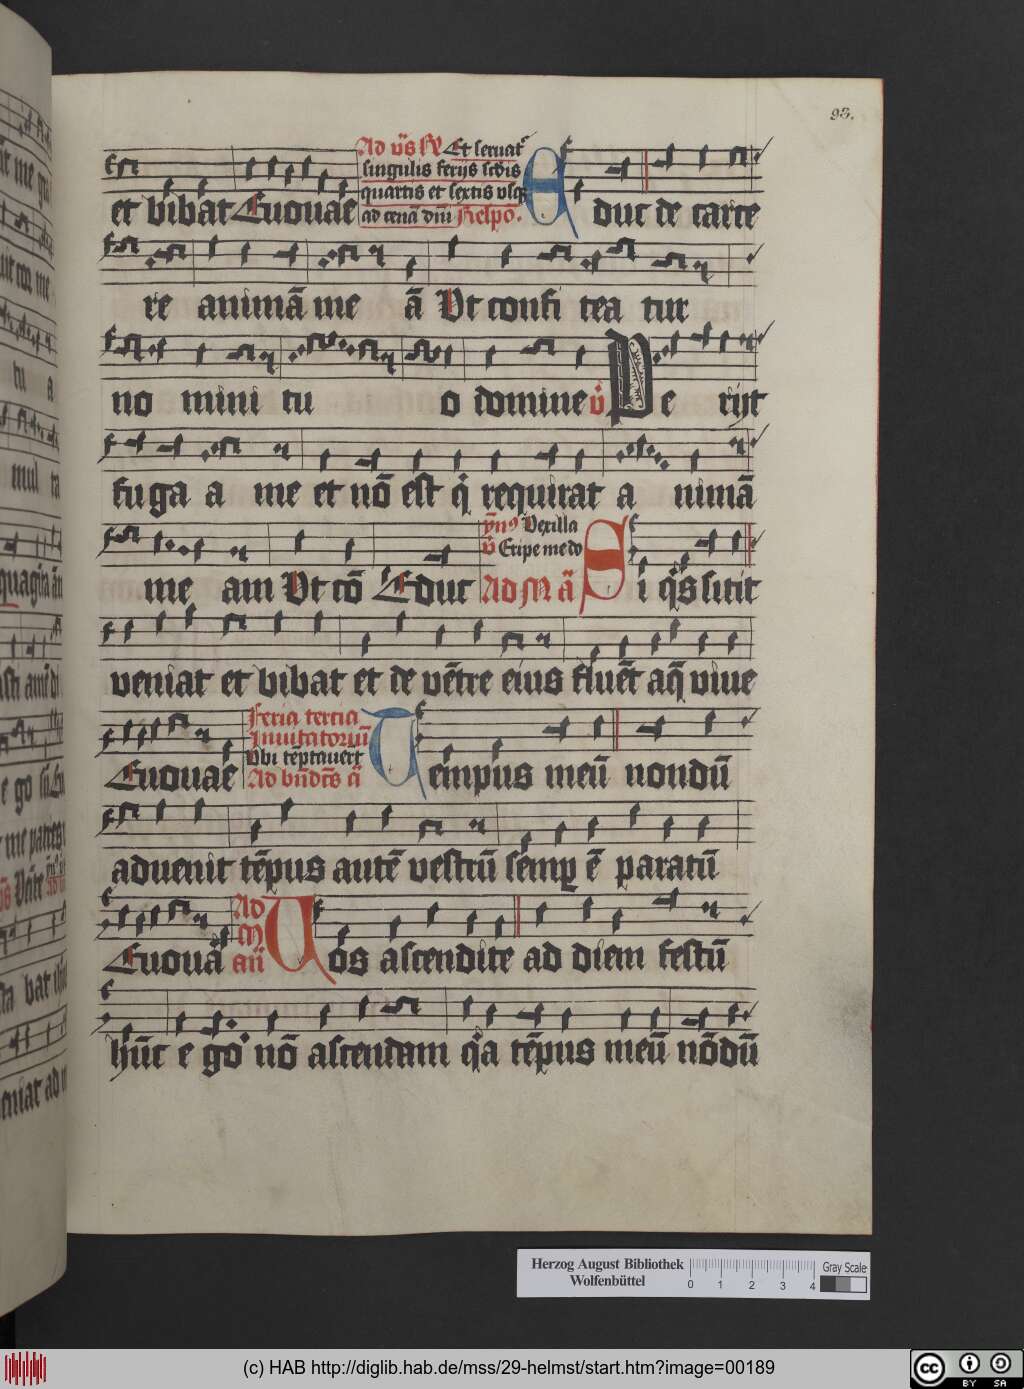 93.
Ad vs̄ R Et seruat᷒
singulis ferijs scd̄is
quartis et sextis vsq
ad cenā dn̄i Respo.
et bibat Euouae E duc de carce
re animā me ā Vt confi tea tur
no mini tu o domine v̄ Pe rijt
fuga a me et nō est q̄ requirat a nimā
ỹn9 Vexilla
v̄ Eripe me do
me am Vt cō Educ Ad M ā Si q̄s sitit
veniat et bibat et de vētre eius fluēt aq̄ viue
Feria tercia
Inuitatoriū
Vbi tēptauert
Ad bn̄dc̄s ā
Euouae Tempus meū nondū
aduenit tēpus autē vestrū semp ē paratū
Ad
M
añ
Euouā Vos ascendite ad diem festū
hūc e go nō ascendam q̄a tēpus meū nōdū
Herzog August Bibliothek
Wolfenbüttel
0 1 2 3 4
Gray Scale
(c) HAB http://diglib.hab.de/mss/29-helmst/start.htm?image=00189
cc BY SA